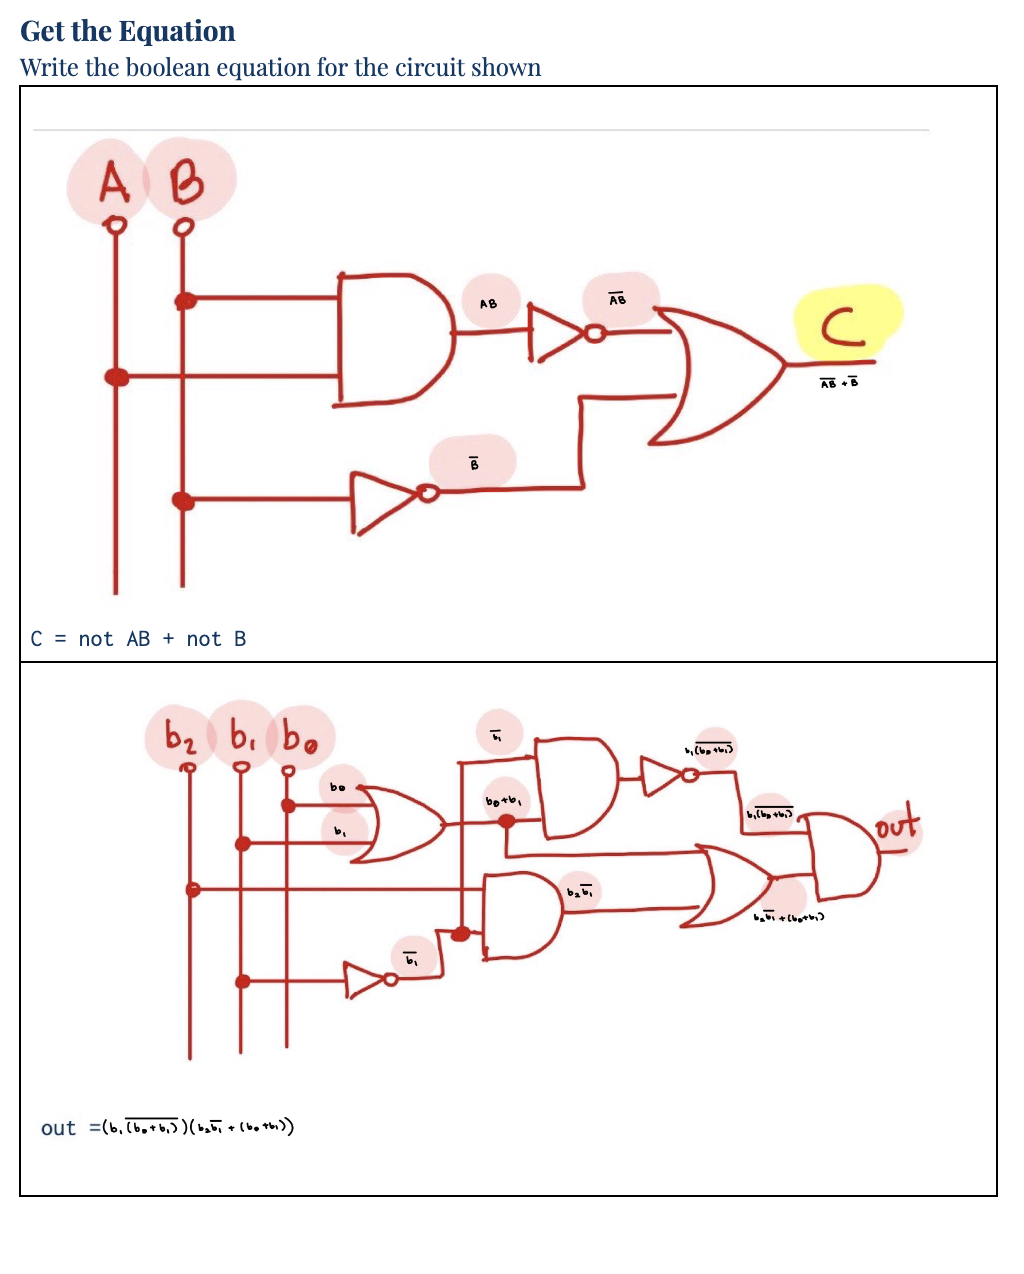 Get the Equation
Write the boolean equation for the circuit shown
A B
AB
A̅B̅
C
A̅B̅ + B̅
B̅
C = not AB + not B
b₂ b₁ b₀
b̅₁
b₁(̅b̅₀̅+̅b̅₁̅)̅
b₀
b₀+b₁
b₁(̅b̅₀̅+̅b̅₁̅)̅
b₁
out
b₂b̅₁
b₂b̅₁ + (b₀+b₁)
b̅₁
out =(b₁(̅b̅₀̅+̅b̅₁̅)̅)(b₂b̅₁ + (b₀+b₁))